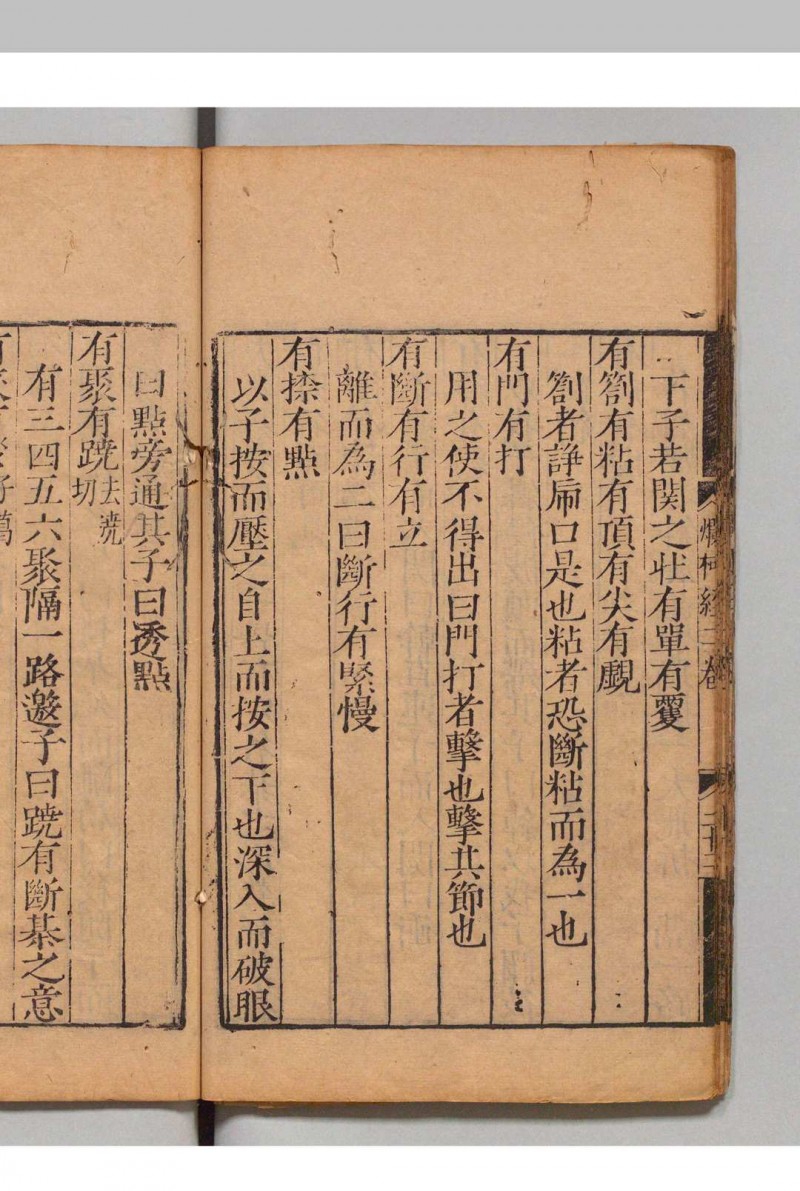 爛柯經二卷
下子若関之壯有單有覆
有劄有粘有頂有尖有覷
劄者諍扄口是也粘者恐斷粘而為一也
有門有打
用之使不得出曰門打者擊也擊其節也
有斷有行有立
離而為二曰斷行有緊慢
有捺有點
以子按而壓之自上而按之下也深入而破眼
曰點旁通其子曰透點
有聚有蹺去澆切
有三四五六聚隔一路邀子曰蹺有斷棊之意